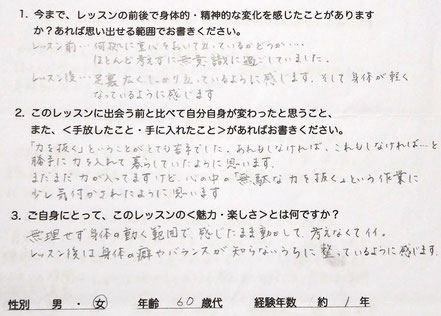 1. 今まで、レッスンの前後で身体的・精神的な変化を感じたことがあります
か？あれば思い出せる範囲でお書きください。
レッスン前… 何処に重心をおいて立っているかどうか…
ほとんど考えずに無意識に過ごしていました。
レッスン後… 足裏 しっかり立っているように感じます。そして身体が軽く
なっているように感じます
2. このレッスンに出会う前と比べて自分自身が変わったと思うこと、
また、＜手放したこと・手に入れたこと＞があればお書きください。
「力を抜く」ということがとても苦手でした。あれもしなければ、これもしなければ…と
勝手に力を入れて暮らしていたように思います。
まだまだ力が入ってますけど、心の中の「無駄な力を抜く」という作業に
少し気付かされたように思います
3. ご自身にとって、このレッスンの＜魅力・楽しさ＞とは何ですか？
無理せず身体の動く範囲で、感じたまま動かして、考えなくてイイ。
レッスン後は身体の癖やバランスが知らないうちに整っているように感じます。
性別 男 ・ 女 年齢 60歳代 経験年数 約 1 年